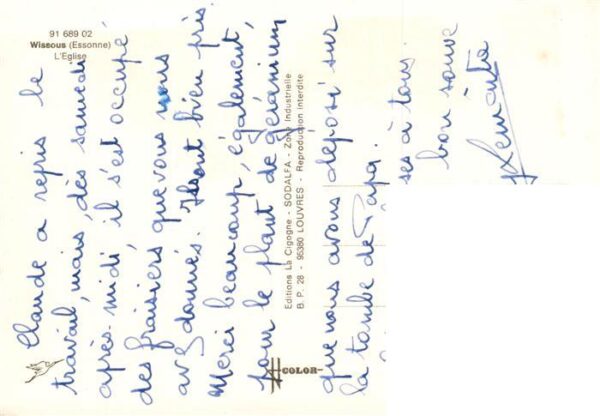 91 689 02
Wissous (Essonne)
L'Eglise
Claude a repris le
travail, mais, dès samedi
après-midi il s'est occupé
des fraisiers que vous nous
avez donnés. Ils ont bien pris.
Merci beaucoup, également,
pour le plant de géranium
que nous avons déposé sur
la tombe de Papa.
ses à tous.
bon souve
Editions La Cigogne - SODALFA - Zone Industrielle
B. P. 28 - 95380 LOUVRES - Reproduction interdite
COLOR